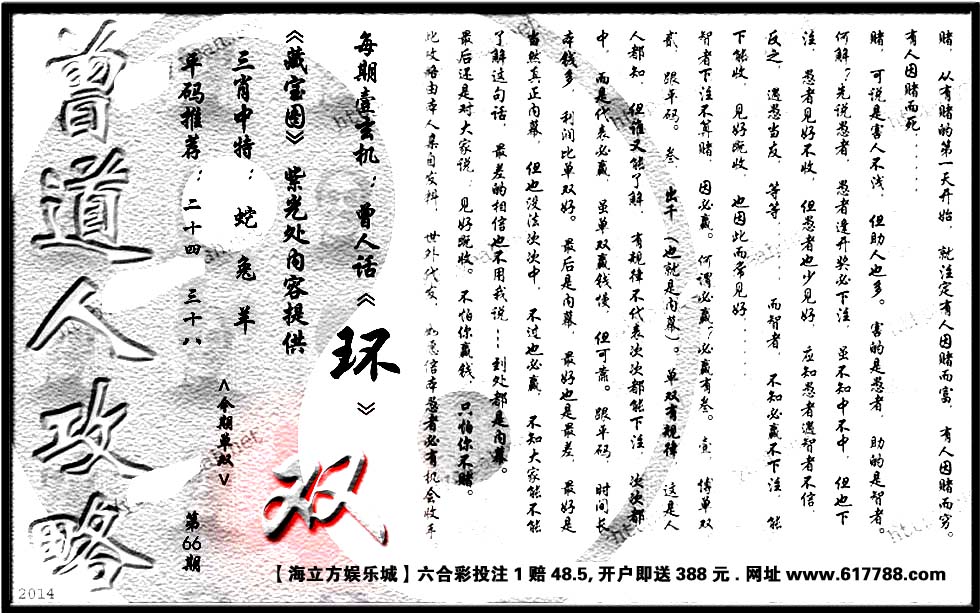 赌，从有赌的第一天开始，就注定有人因赌而富，有人因赌而穷。
有人因赌而死......
赌，可说是害人不浅，但助人也多。害的是愚者，助的是智者。
何解？先说愚者，愚者逢开奖必下注，虽不知中不中，但也下
注，愚者见好不收，但愚者也少见好，应知愚者遇智者不信，
反之，遇愚当友，等等......而智者，不知必赢不下注，能
下能收，见好既收，也因此而常见好......
智者下注不算赌，因必赢。何谓必赢？必赢有叁。壹，博单双，
贰，跟平码。叁，出千（也就是内幕）。单双有规律，这是人
人都知，但谁又能了解，有规律不代表次次都能下注，次次都
中，而是代表必赢，虽单双赢钱慢，但可靠。跟平码，时间长，
本钱多，利润比单双好。最后是内幕，最好也是最差，最好是
当然真正内幕，但也没法次次中，不过也必赢，不知大家能不
了解这句话，最差的相信也不用我说...到处都是内幕。
最后还是对大家说：见好既收。不怕你赢钱，只怕你不赌。
此攻略由本人亲自发料，世外代友，如愿信本愚者必有机会收手
每期壹玄机：曾人话《环》
《藏宝图》紫光处内容提供
三肖中特：蛇兔羊
平码推荐：二十四 三十八
<今期单双>
双
第66期
曾道人攻略
【海立方娱乐城】六合彩投注1赔48.5,开户即送388元.网址www.617788.com
2014